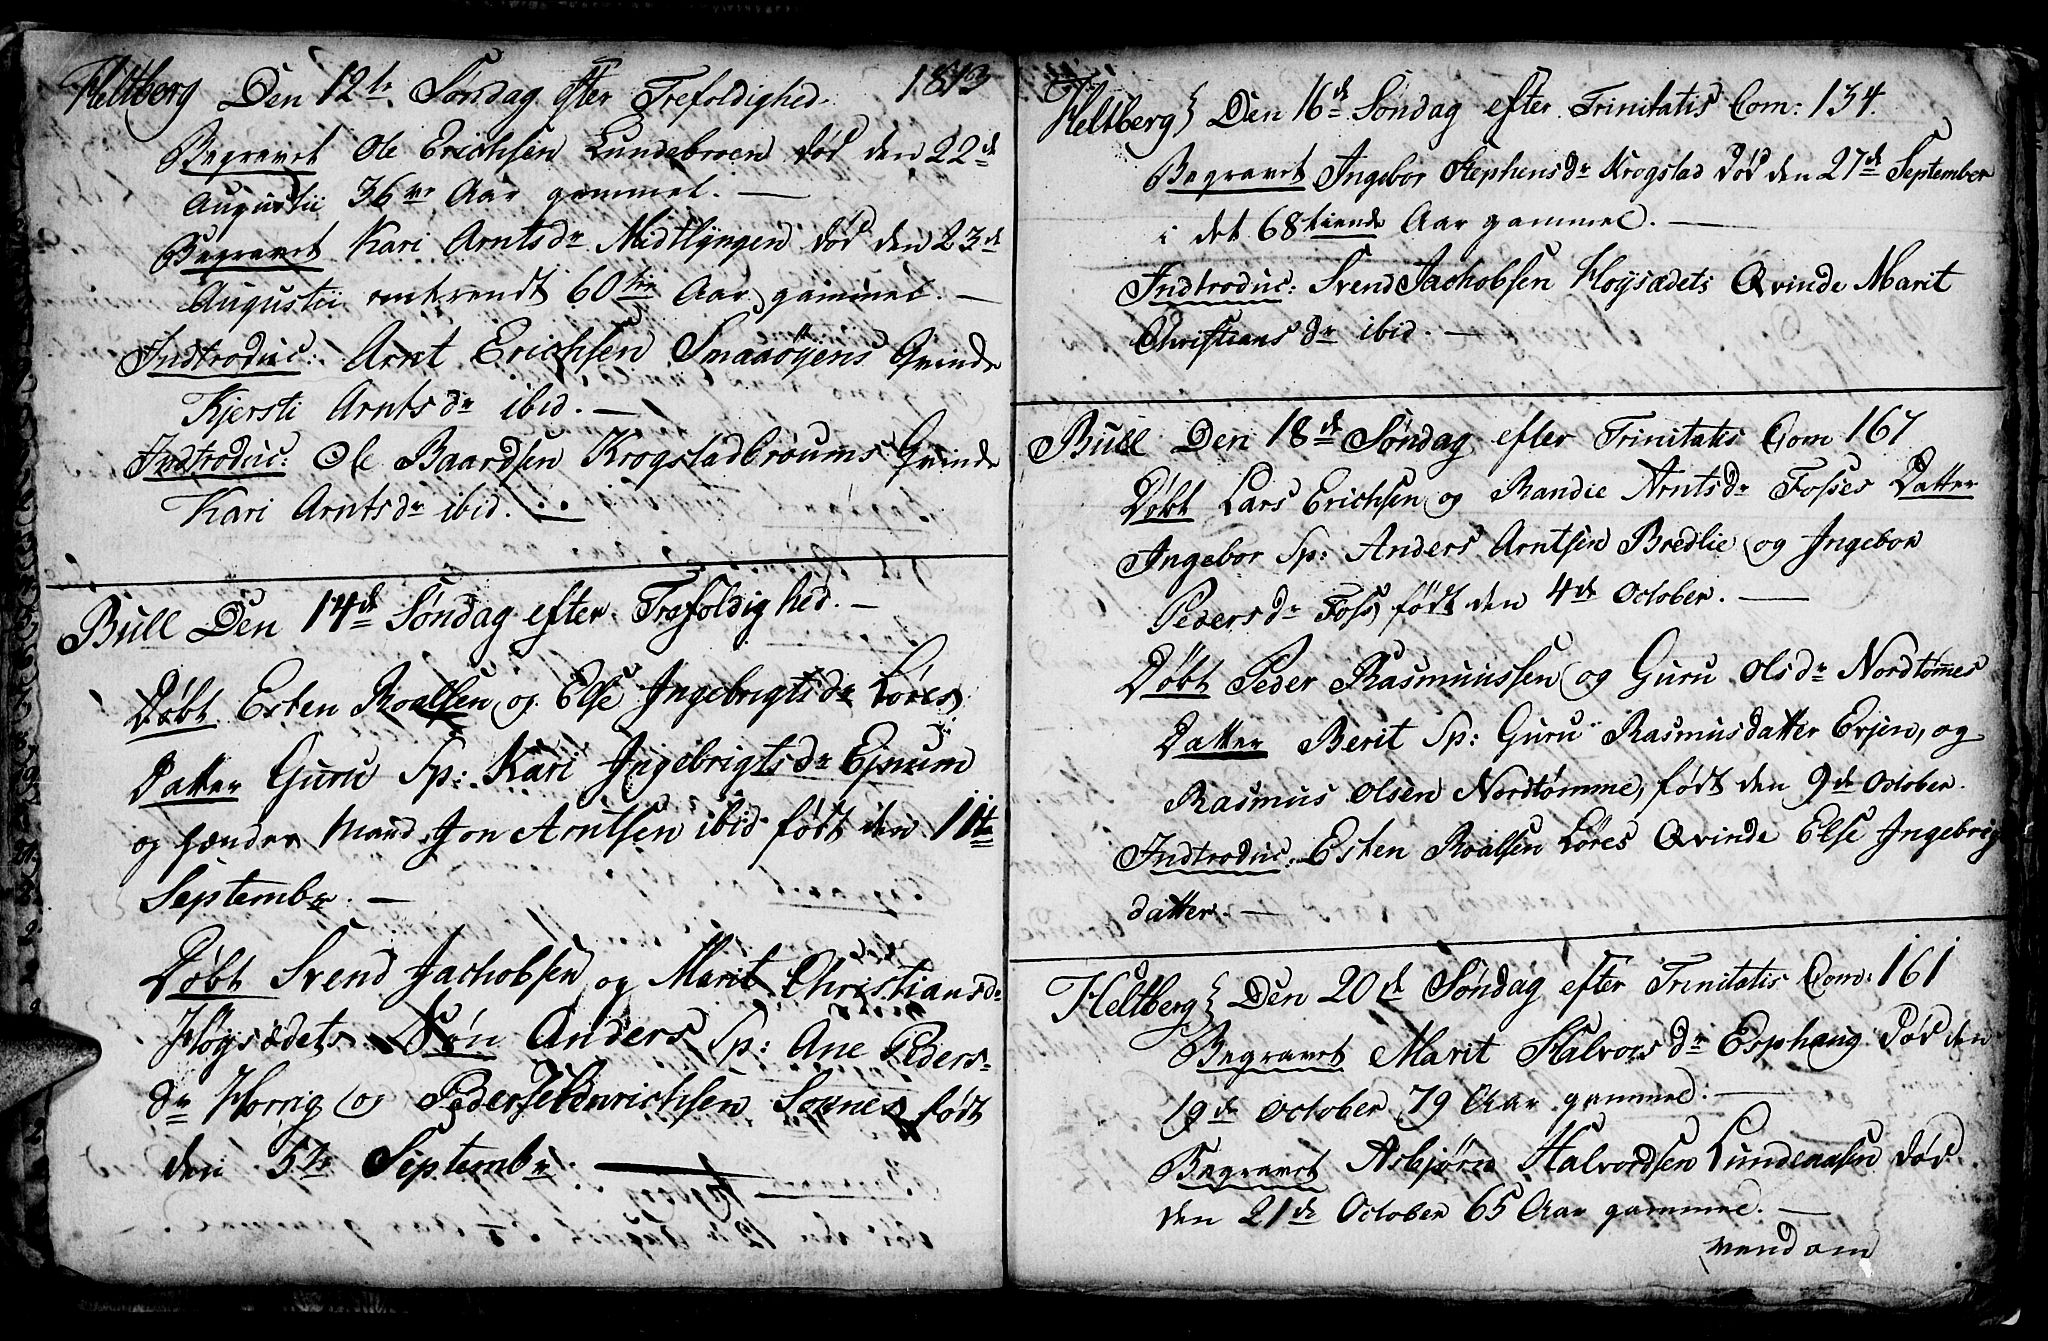 Heltberg Den 12te Søndag efter Trefoldighed. 1813
Begravet Ole Erichsen Lundebroen død den 22de
Augustii 36 Aar gammel. —
Begravet Kari Arntsdr Midtlyngen død den 23de
Augustii omtrendt 60 Aar gammel. —
Indtroduc: Arnt Erichsen Smaaøyens Qvinde
Kjersti Arntsdr ibid. —
Indtroduc: Ole Baardsen Krogstadbrøums Qvinde
Kari Arntsdr ibid.
Bull Den 14de Søndag efter Trefoldighed. —
Døbt Esten Roalsen og Else Ingebrigtsdr Løres
Datter Guru Sp: Kari Ingebrigtsdr Ejnum
og hendes Mand Jon Arntsen ibid født den 11te
Septembr. —
Døbt Svend Jachobsen og Marit Christiansdr
Høysædets Søn Anders Sp: Ane Peders-
dr Horrig og Peder Hendrichsen Soknes født
den 5te Septembr. —
Heltberg Den 16de Søndag efter Trinitatis Com: 134.
Begravet Ingebor Stephensdr Krogstad død den 27de September
i det 68tiende Aar gammel. —
Indtroduc: Svend Jachobsen Høysædets Qvinde Marit
Christiansdr ibid. —
Bull Den 18de Søndag efter Trinitatis Com 167
Døbt Lars Erichsen og Randie Arntsdr Fosses Datter
Ingebor Sp: Anders Arntsen Bredlie og Ingebor
Pedersdr Foss født den 4de October. —
Døbt Peder Rasmussen og Guru Olsdr Nordtømes
Datter Berit Sp: Guru Rasmusdatter Ersen, og
Rasmus Olsen Nordtømme, født den 9de October.
Indtroduc: Esten Roalsen Løres Qvinde Else Ingebrig
datter. —
Heltberg Den 20de Søndag efter Trinitatis Com: 161
Begravet Marit Halvorsdr Esphaug død den
19de October 79 Aar gammel. —
Begravet Asbjørn Halvordsen Lundemsen død
den 21de October 65 Aar gammel. —
vend om